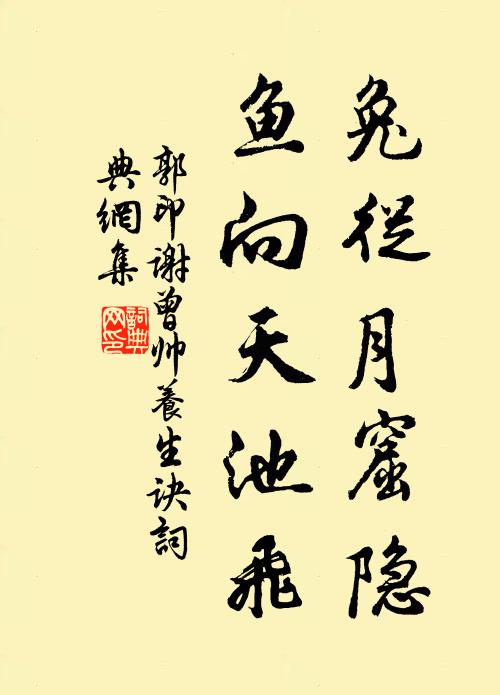 兔從月窟隐
鱼向天池飛
郭印谢曾帅養生诀詞
典網集
詞典网印